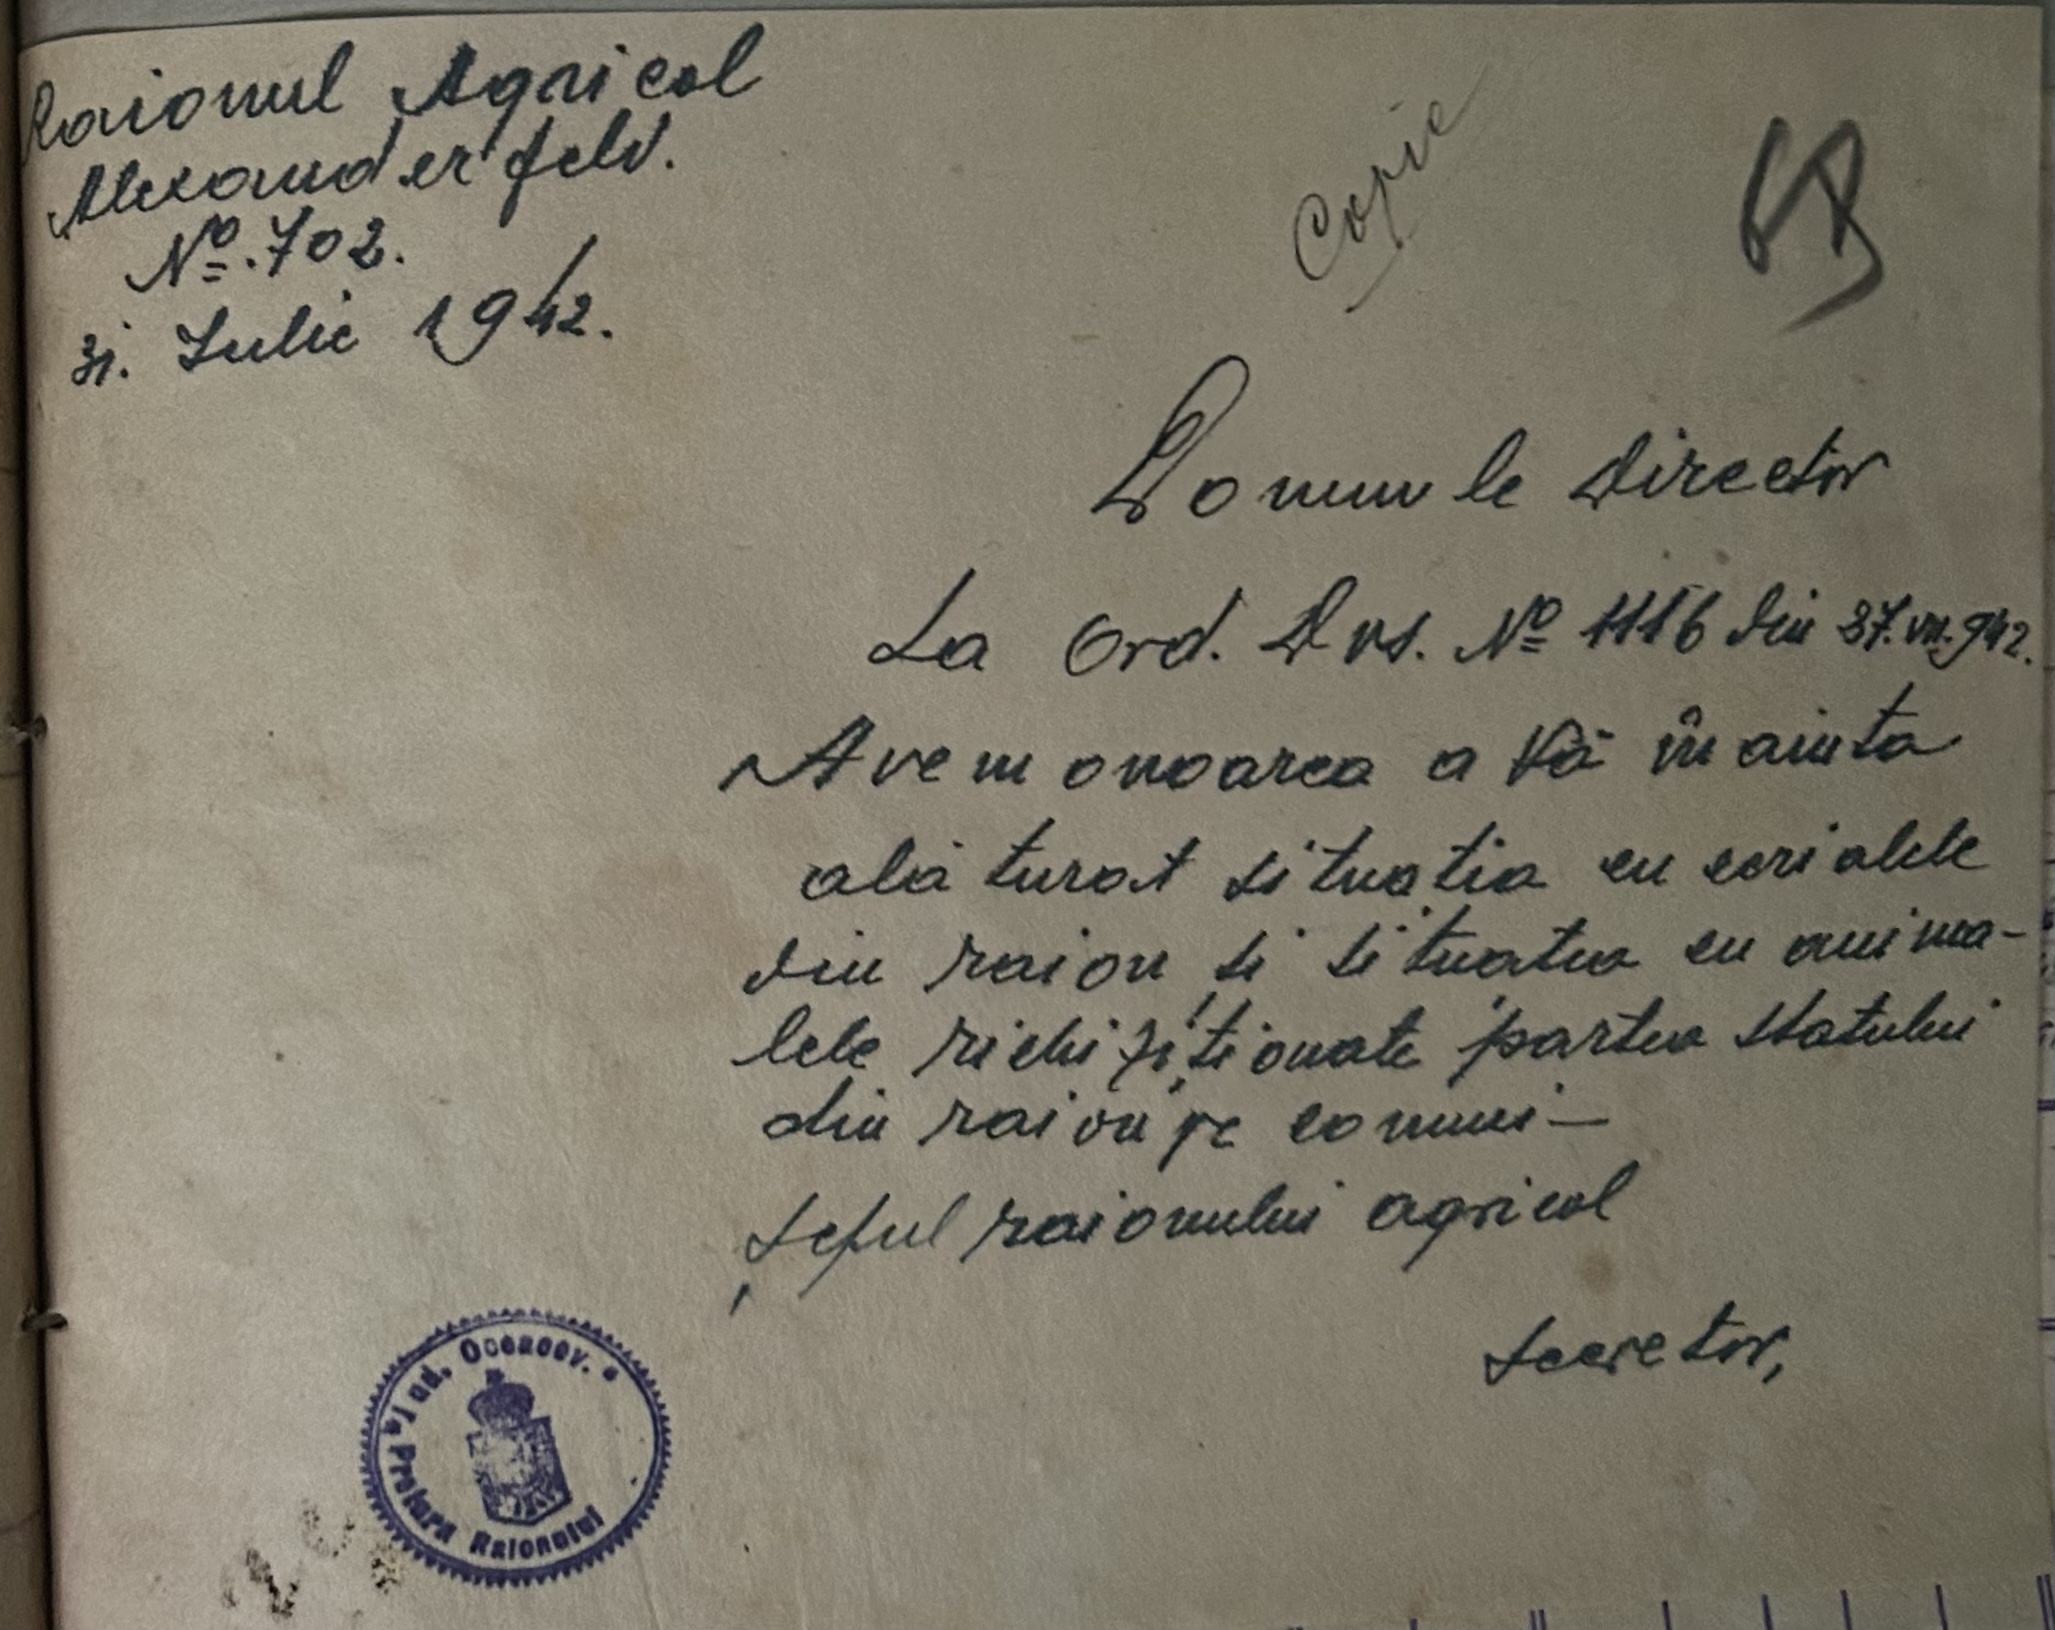 Raionul Agricol
Alexanderfeld.
Nº. 702.
31. Iulie 1942.
Copie
Domnule Director
La Ord. Dvs. Nº 1116 din 27.VII.942.
Avem onoarea a Vă înainta
alăturat situatia cu cerialele
din raion si situatia cu anima-
lele richiziționate partea statului
din raion pe comuni —
Șeful raionului agricol
Secretor,
Jud. Oceacov.
Pretura Raionului